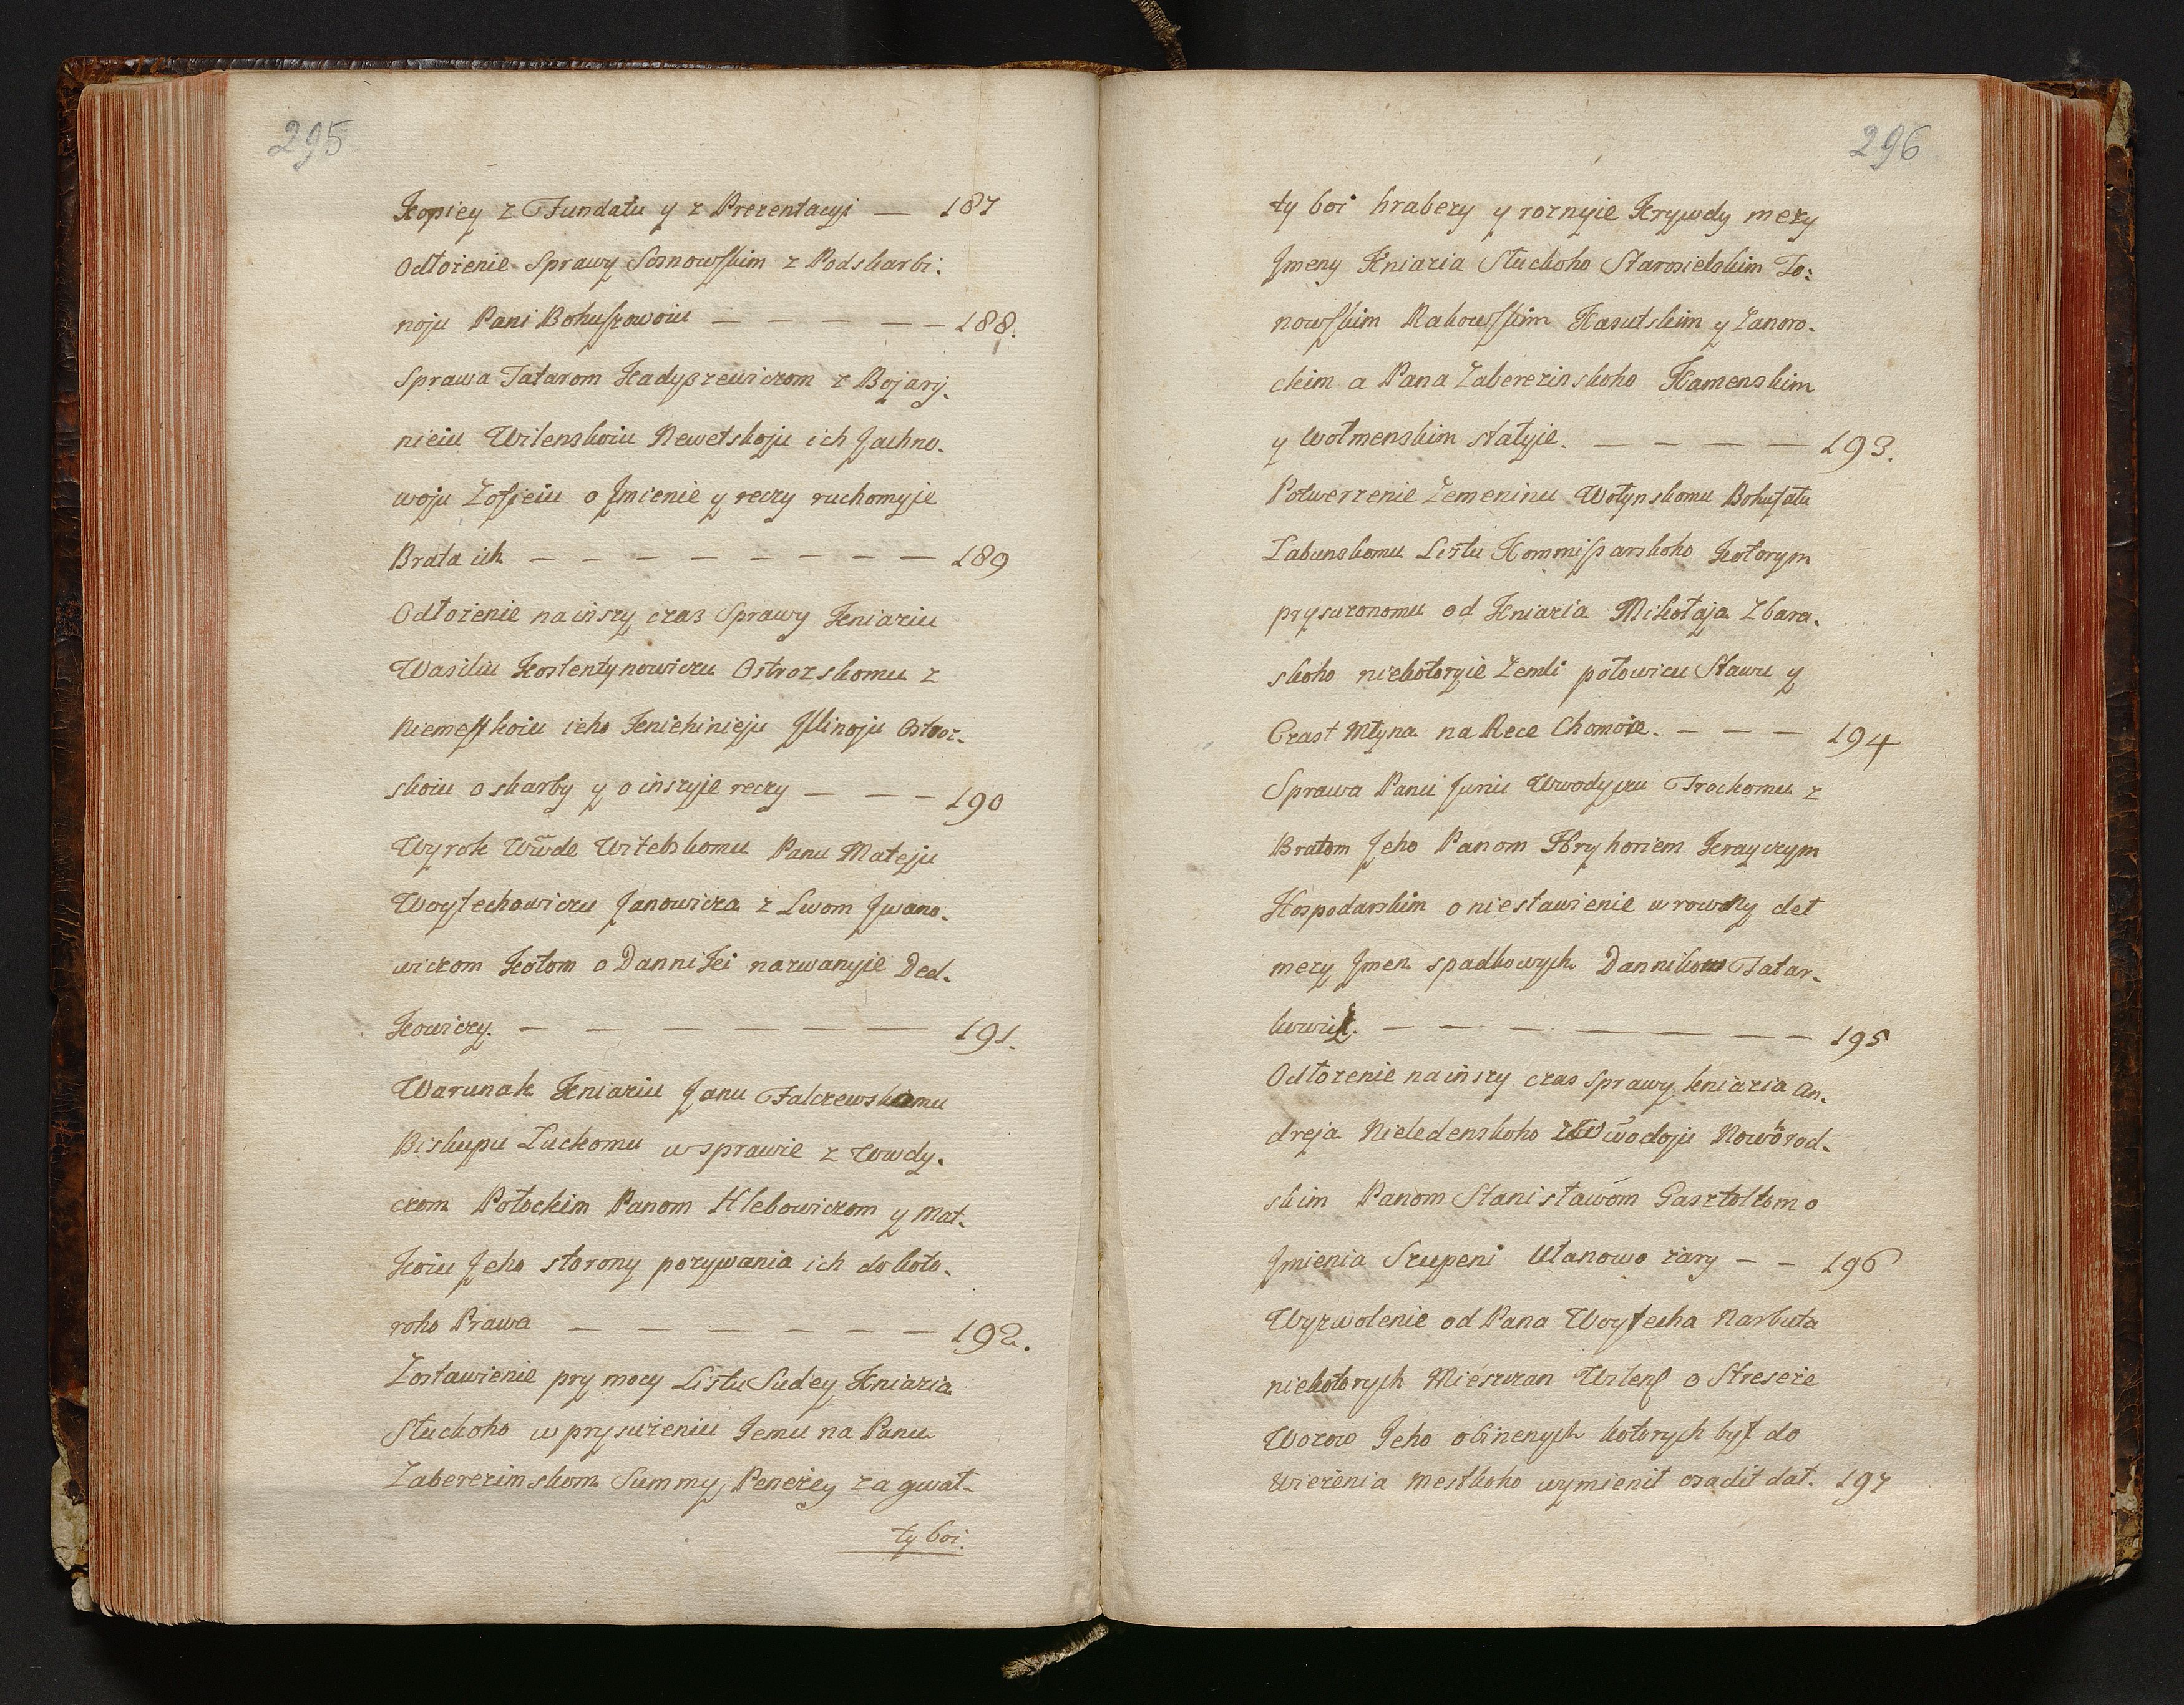 295
Kopiey z Fundatu y z Prezentacyi — 187
Odłożenie Sprawy Sosnowskim z Podskarbi:
noju Pani Bohuszowoiu — — — — — 188.
Sprawa Tatarom Kadyszewiczom z Bojary,
nieiu Wilenskoiu Newetskoju ich Jachno,
woju Zofieiu o Jmienie y reczy ruchomyje
Brata ich — — — — — — — — 189
Odłożenie na inszy czas Sprawy Kniaziu
Wasiliu Kostentynowiczu Ostrozskomu z
Niemestkoiu ieho Kniehinieju Illinoju Ostroz-
skoiu o skarby y o inszyje reczy — — — 190
Wyrok Wwde Witebskomu Panu Mateju
Woytechowiczu Janowicza z Lwom Jwano,
wiczom Kotom o Danniki nazwanyie Ded,
Kowiczy. — — — — — — — 191.
Warunak Kniaziu Janu Falczewskomu
Biskupu Luckomu w sprawie z Wwdy,
czom Połockim Panom Hlebowiczom y Mat,
Koiu Jeho storony pozywania ich do koto,
roho Prawa — — — — — — — 192.
Zostawienie pry mocy Listu Sudey Kniazia
Słuckoho w prysuzeniu Jemu na Panu
Zaberezimskom Summy Penezey za gwat-
ty boi.
296
ty boi hrabezy y roznyie Krywdy mezy
Jmeny Kniazia Słuckoho Starosielskim To:
nowskim Rakowskim Kasutskim y Zanoro-
ckim a Pana Zaberezinskoho Kamenskim
y Wołmenskim statyie. — — — — 193.
Potwerzenie Zemeninu Wołynskomu Bohufatu
Łabunskomu Listu Kommissarskoho Kotorym
prysuzonomu od Kniazia Mikołaja Zbara-
skoho niekotoryie Zemli połowicu Stawu y
Czast Młyna na Rece Chomorze. — — — 194
Sprawa Panu Juriu Wwodyczu Trockomu z
Bratom Jeho Panom Hryhoriem Krayczym
Hospodarskim o niestawienie w rowny det
mezy Jmen spadkowych Dannikow Tatar-
kowich. — — — — — — — 195
Odłożenie na inszy czas Sprawy kniazia An,
dreja Nieledenskoho z Wwodoju Nowhorod,
skim Panom Stanisławom Gasztoltom o
Jmienia Szupeni Utanowo zary — — 196
Wyzwolenie od Pana Woytecha Narbuta
niekotorych Mieszczan Wilens o Streseże
Wozow Jeho obinenych kotorych byt do
wiezenia mestkoho wymienit osadit dat. 197